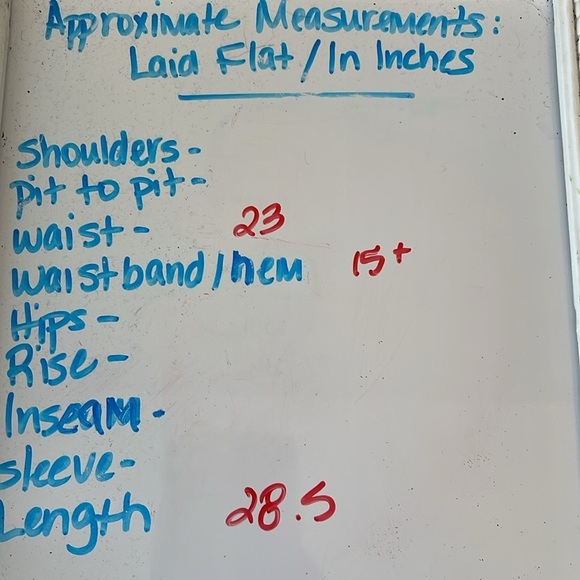 Approximate Measurements:
Laid Flat/In Inches
Shoulders-
Pit to pit-
waist- 23
waistband/hem 15+
Hips-
Rise-
Inseam-
sleeve-
Length 28.5